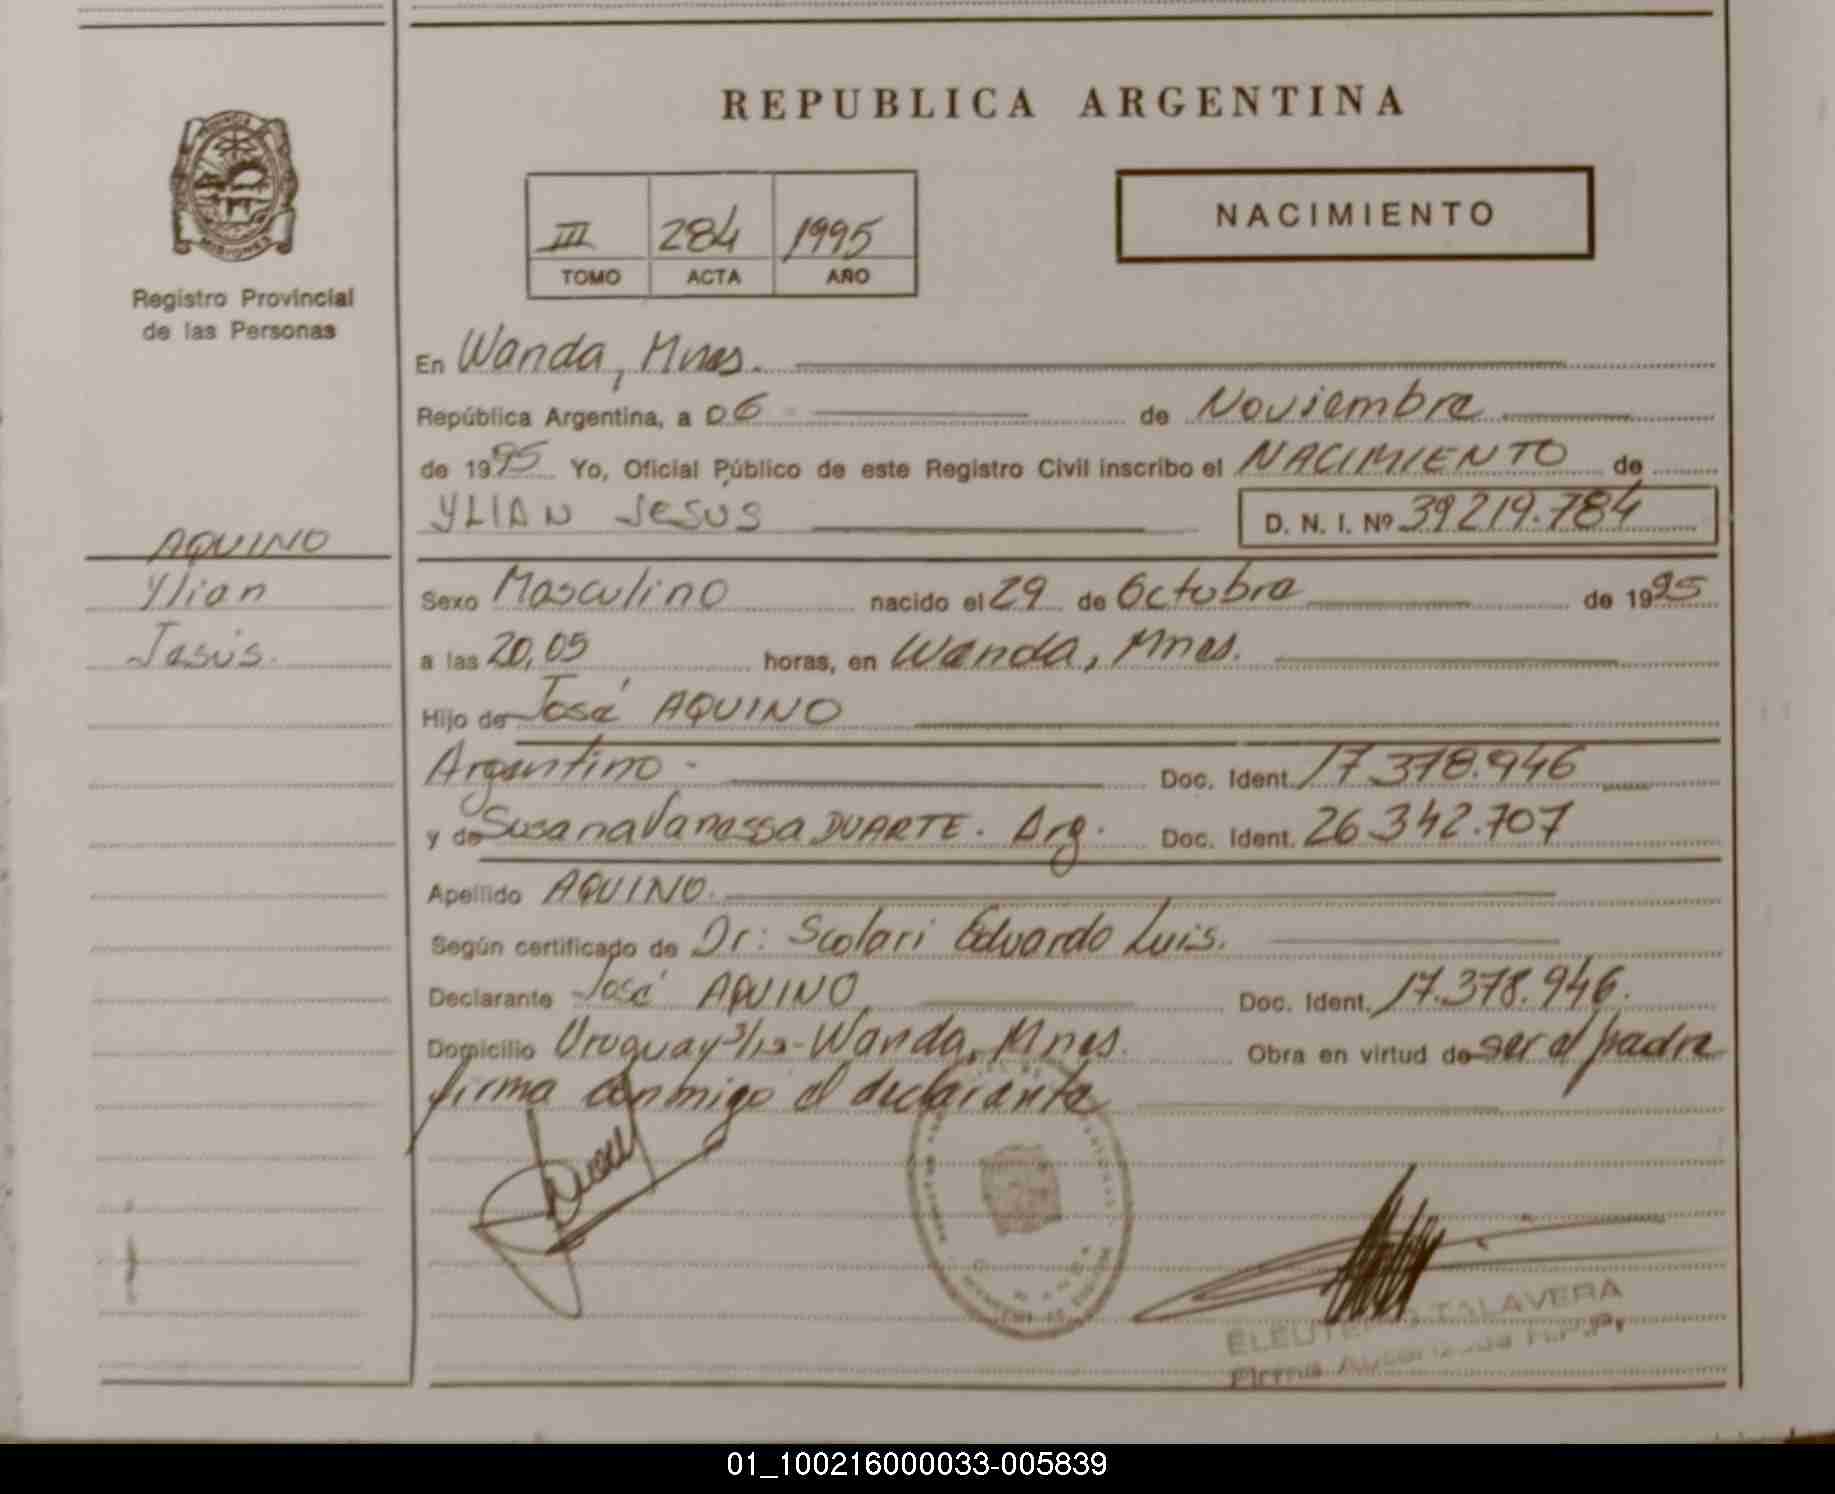 REPUBLICA ARGENTINA
III 284 1995
TOMO ACTA AÑO
NACIMIENTO
Registro Provincial
de las Personas
AQUINO
Ylian
Jesús.
En Wanda, Mnes.
República Argentina, a 06 de Noviembre
de 1995 Yo, Oficial Público de este Registro Civil inscribo el NACIMIENTO de
YLIAN JESUS D. N. I. Nº 39219.784
Sexo Masculino nacido el 29 de Octubre de 1995
a las 20,05 horas, en Wanda, Mnes.
Hijo de José AQUINO
Argentino - Doc. Ident. 17.378.946
y de Susana Vanessa DUARTE. Arg. Doc. Ident. 26.342.707
Apellido AQUINO.
Según certificado de Dr: Scolari Eduardo Luis.
Declarante José AQUINO Doc. Ident. 17.378.946.
Domicilio Uruguay - Wanda, Mnes. Obra en virtud de ser el padre
firma conmigo el declarante
TALAVERA
Firma
01_100216000033-005839